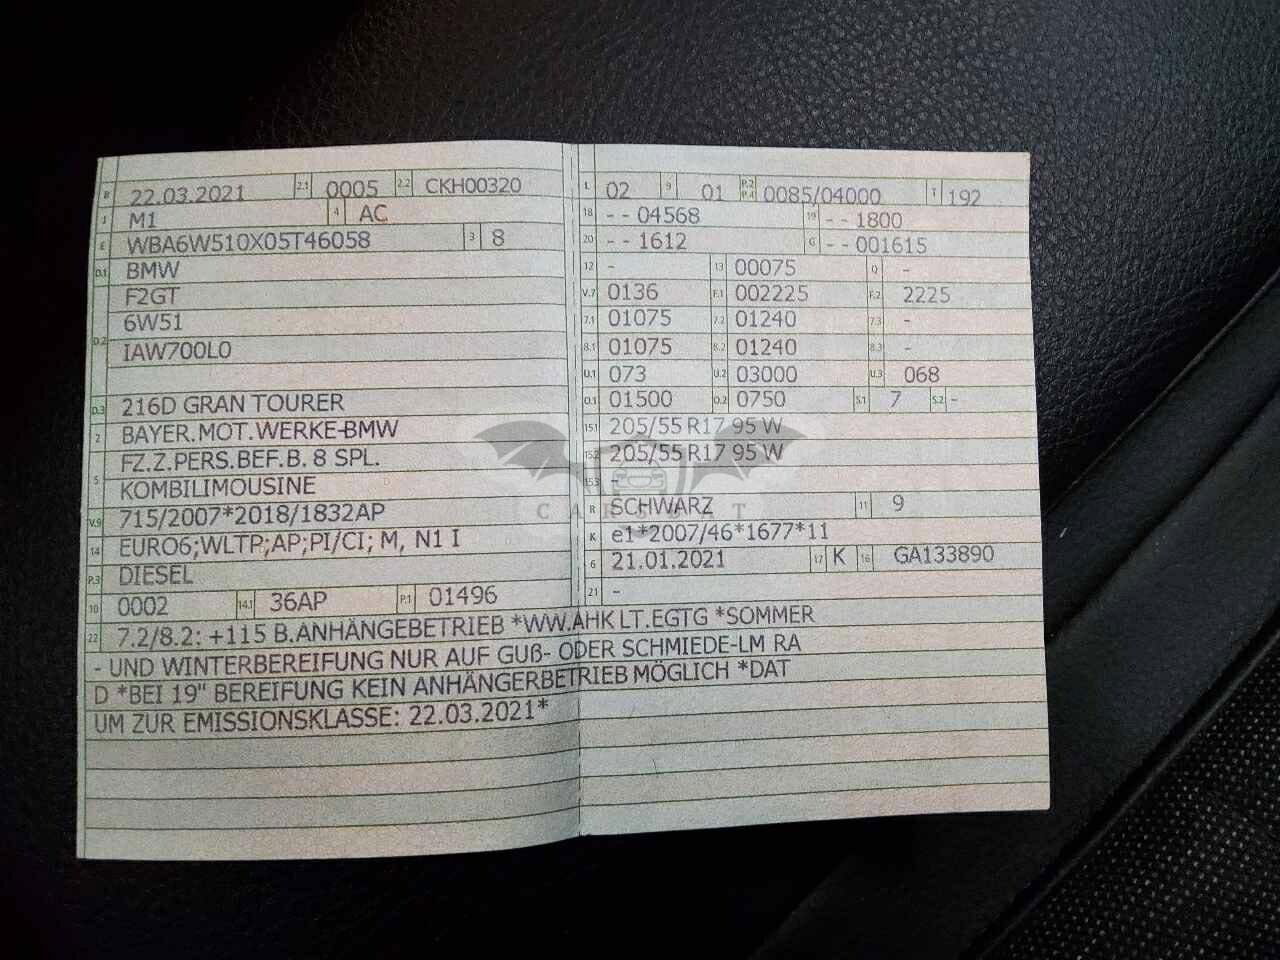 B 22.03.2021 2.1 0005 2.2 CKH00320
J M1 4 AC
E WBA6W510X05T46058 3 8
D.1 BMW
F2GT
6W51
D.2
IAW700L0
D.3 216D GRAN TOURER
2 BAYER.MOT.WERKE-BMW
FZ.Z.PERS.BEF.B. 8 SPL.
5
KOMBILIMOUSINE
V.9 715/2007*2018/1832AP
14 EURO6;WLTP;AP;PI/CI; M, N1 I
P.3 DIESEL
10 0002 14.1 36AP P.1 01496
L 02 9 01 P.2 P.4 0085/04000 T 192
18 - - 04568 19 - - 1800
20 - - 1612 G - - 001615
12 - 13 00075 Q -
V.7 0136 F.1 002225 F.2 2225
7.1 01075 7.2 01240 7.3 -
8.1 01075 8.2 01240 8.3 -
U.1 073 U.2 03000 U.3 068
O.1 01500 O.2 0750 S.1 7 S.2 -
15.1 205/55 R17 95 W
15.2 205/55 R17 95 W
15.3 -
R SCHWARZ 11 9
K e1*2007/46*1677*11
6 21.01.2021 17 K 16 GA133890
21 -
22 7.2/8.2: +115 B.ANHÄNGEBETRIEB *WW.AHK LT.EGTG *SOMMER
- UND WINTERBEREIFUNG NUR AUF GUß- ODER SCHMIEDE-LM RA
D *BEI 19" BEREIFUNG KEIN ANHÄNGERBETRIEB MÖGLICH *DAT
UM ZUR EMISSIONSKLASSE: 22.03.2021*